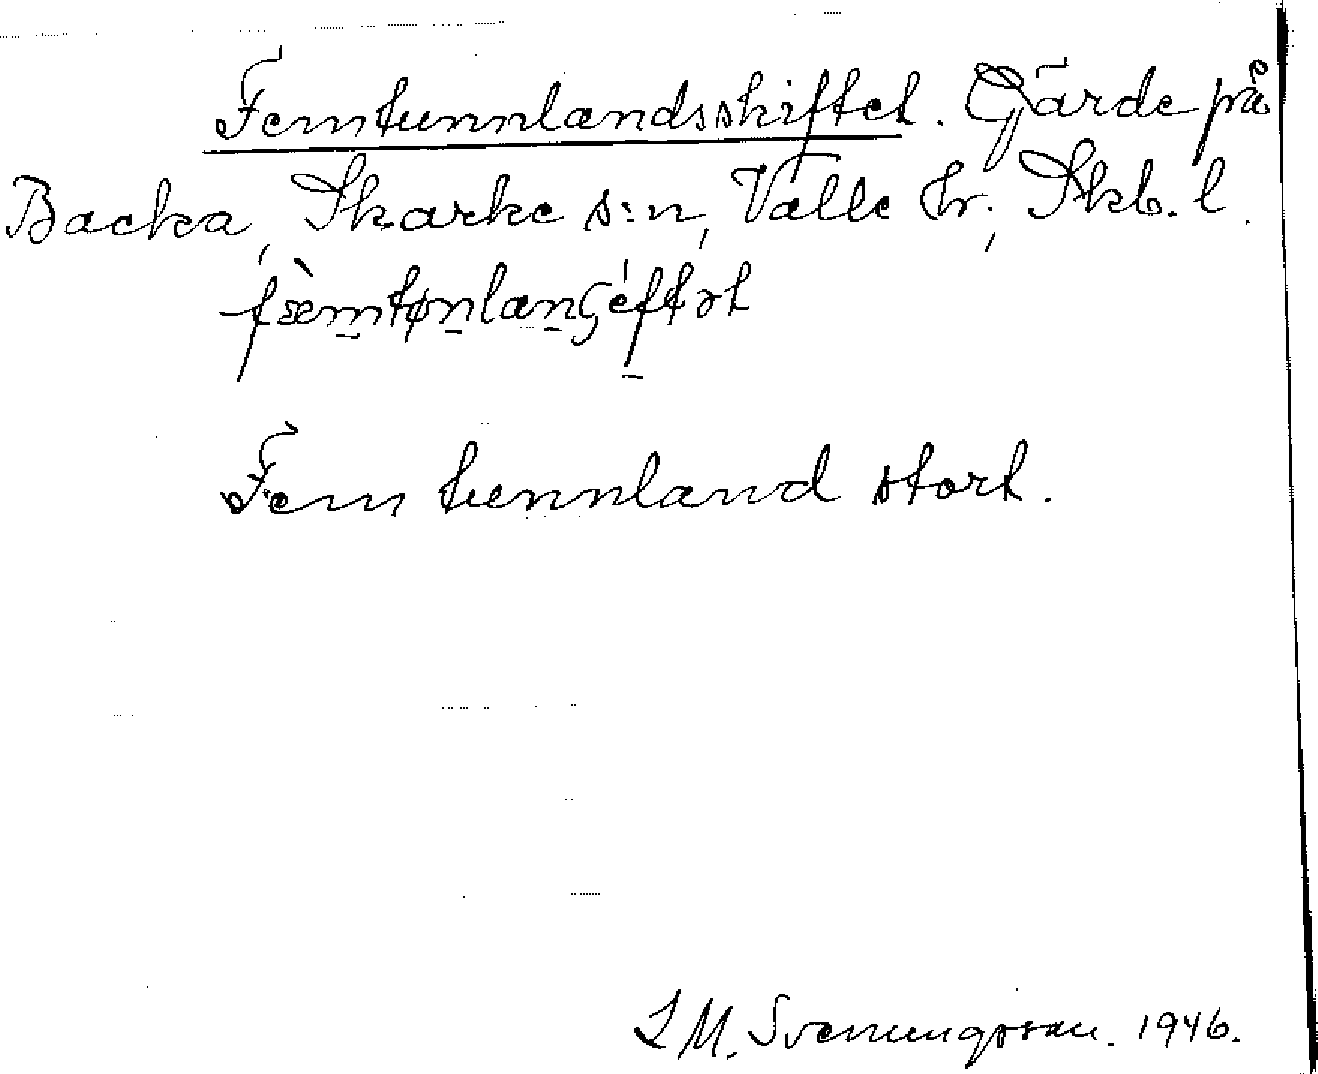 Femtunnlandsskiftet. Gärde på
Backa, Skarke s:n, Valle hr; Skb. l.
fèmtønlanʃéftət
Fem tunnland stort.
L M. Svenungsson. 1946.